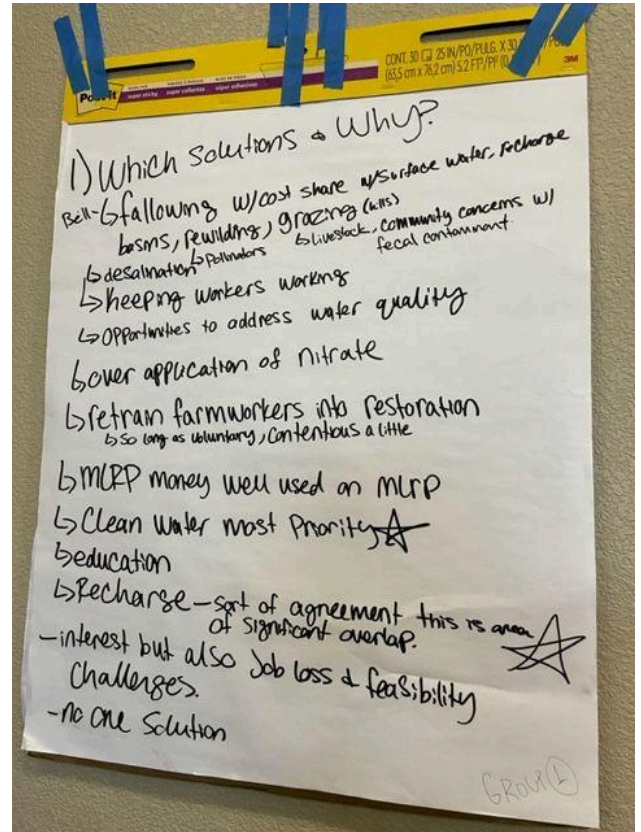 Post-it
super sticky super collantes súper adhesivas
CONT. 30 25 IN/PO/PULG. X 30
(63,5 cm x 76,2 cm) 5.2 FT²/PI²
3M
1) Which Solutions & Why?
Bell-↳fallowing w/cost share w/surface water, recharge
basins, rewilding, grazing (hills)
↳desalination ↳pollinators ↳livestock, community concerns w/
fecal contaminent
↳keeping workers working
↳opportunities to address water quality
↳over application of nitrate
↳retrain farmworkers into restoration
↳so long as voluntary, contentious a little
↳MLRP money well used on MLRP
↳Clean Water most Priority☆
↳education
↳Recharge – sort of agreement this is area
of significant overlap. ☆
-interest but also Job loss & feasibility
Challenges.
-no one Solution
GROUP 1